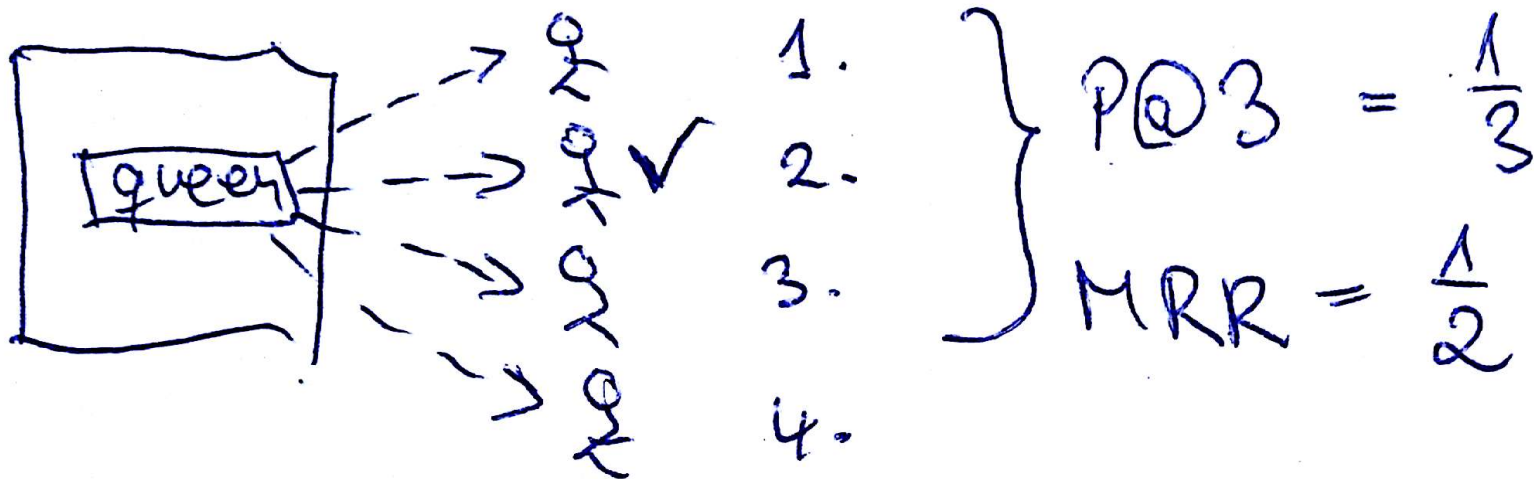 1.
queen
2.
3.
4.
P@3 = 1/3
MRR = 1/2